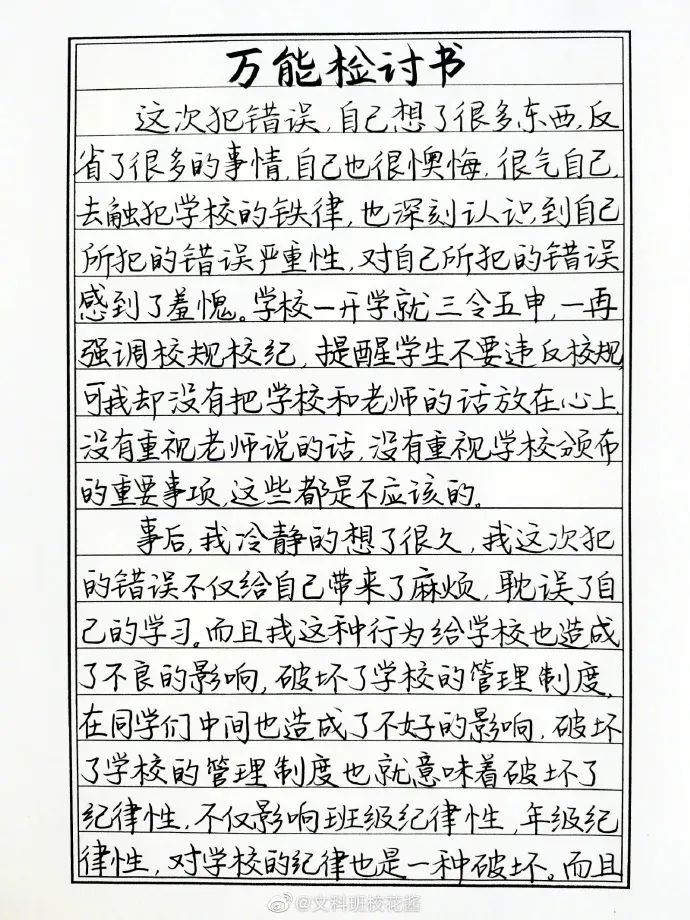 万能检讨书
这次犯错误,自己想了很多东西,反
省了很多的事情,自己也很懊悔,很气自己,
去触犯学校的铁律,也深刻认识到自己
所犯的错误严重性,对自己所犯的错误
感到了羞愧。学校一开学就三令五申,一再
强调校规校纪,提醒学生不要违反校规,
可我却没有把学校和老师的话放在心上,
没有重视老师说的话,没有重视学校颁布
的重要事项,这些都是不应该的。
事后,我冷静的想了很久,我这次犯
的错误不仅给自己带来了麻烦,耽误了自
己的学习。而且我这种行为给学校也造成
了不良的影响,破坏了学校的管理制度。
在同学们中间也造成了不好的影响,破坏
了学校的管理制度也就意味着破坏了
纪律性,不仅影响班级纪律性,年级纪
律性,对学校的纪律也是一种破坏。而且
@文科班校花酱